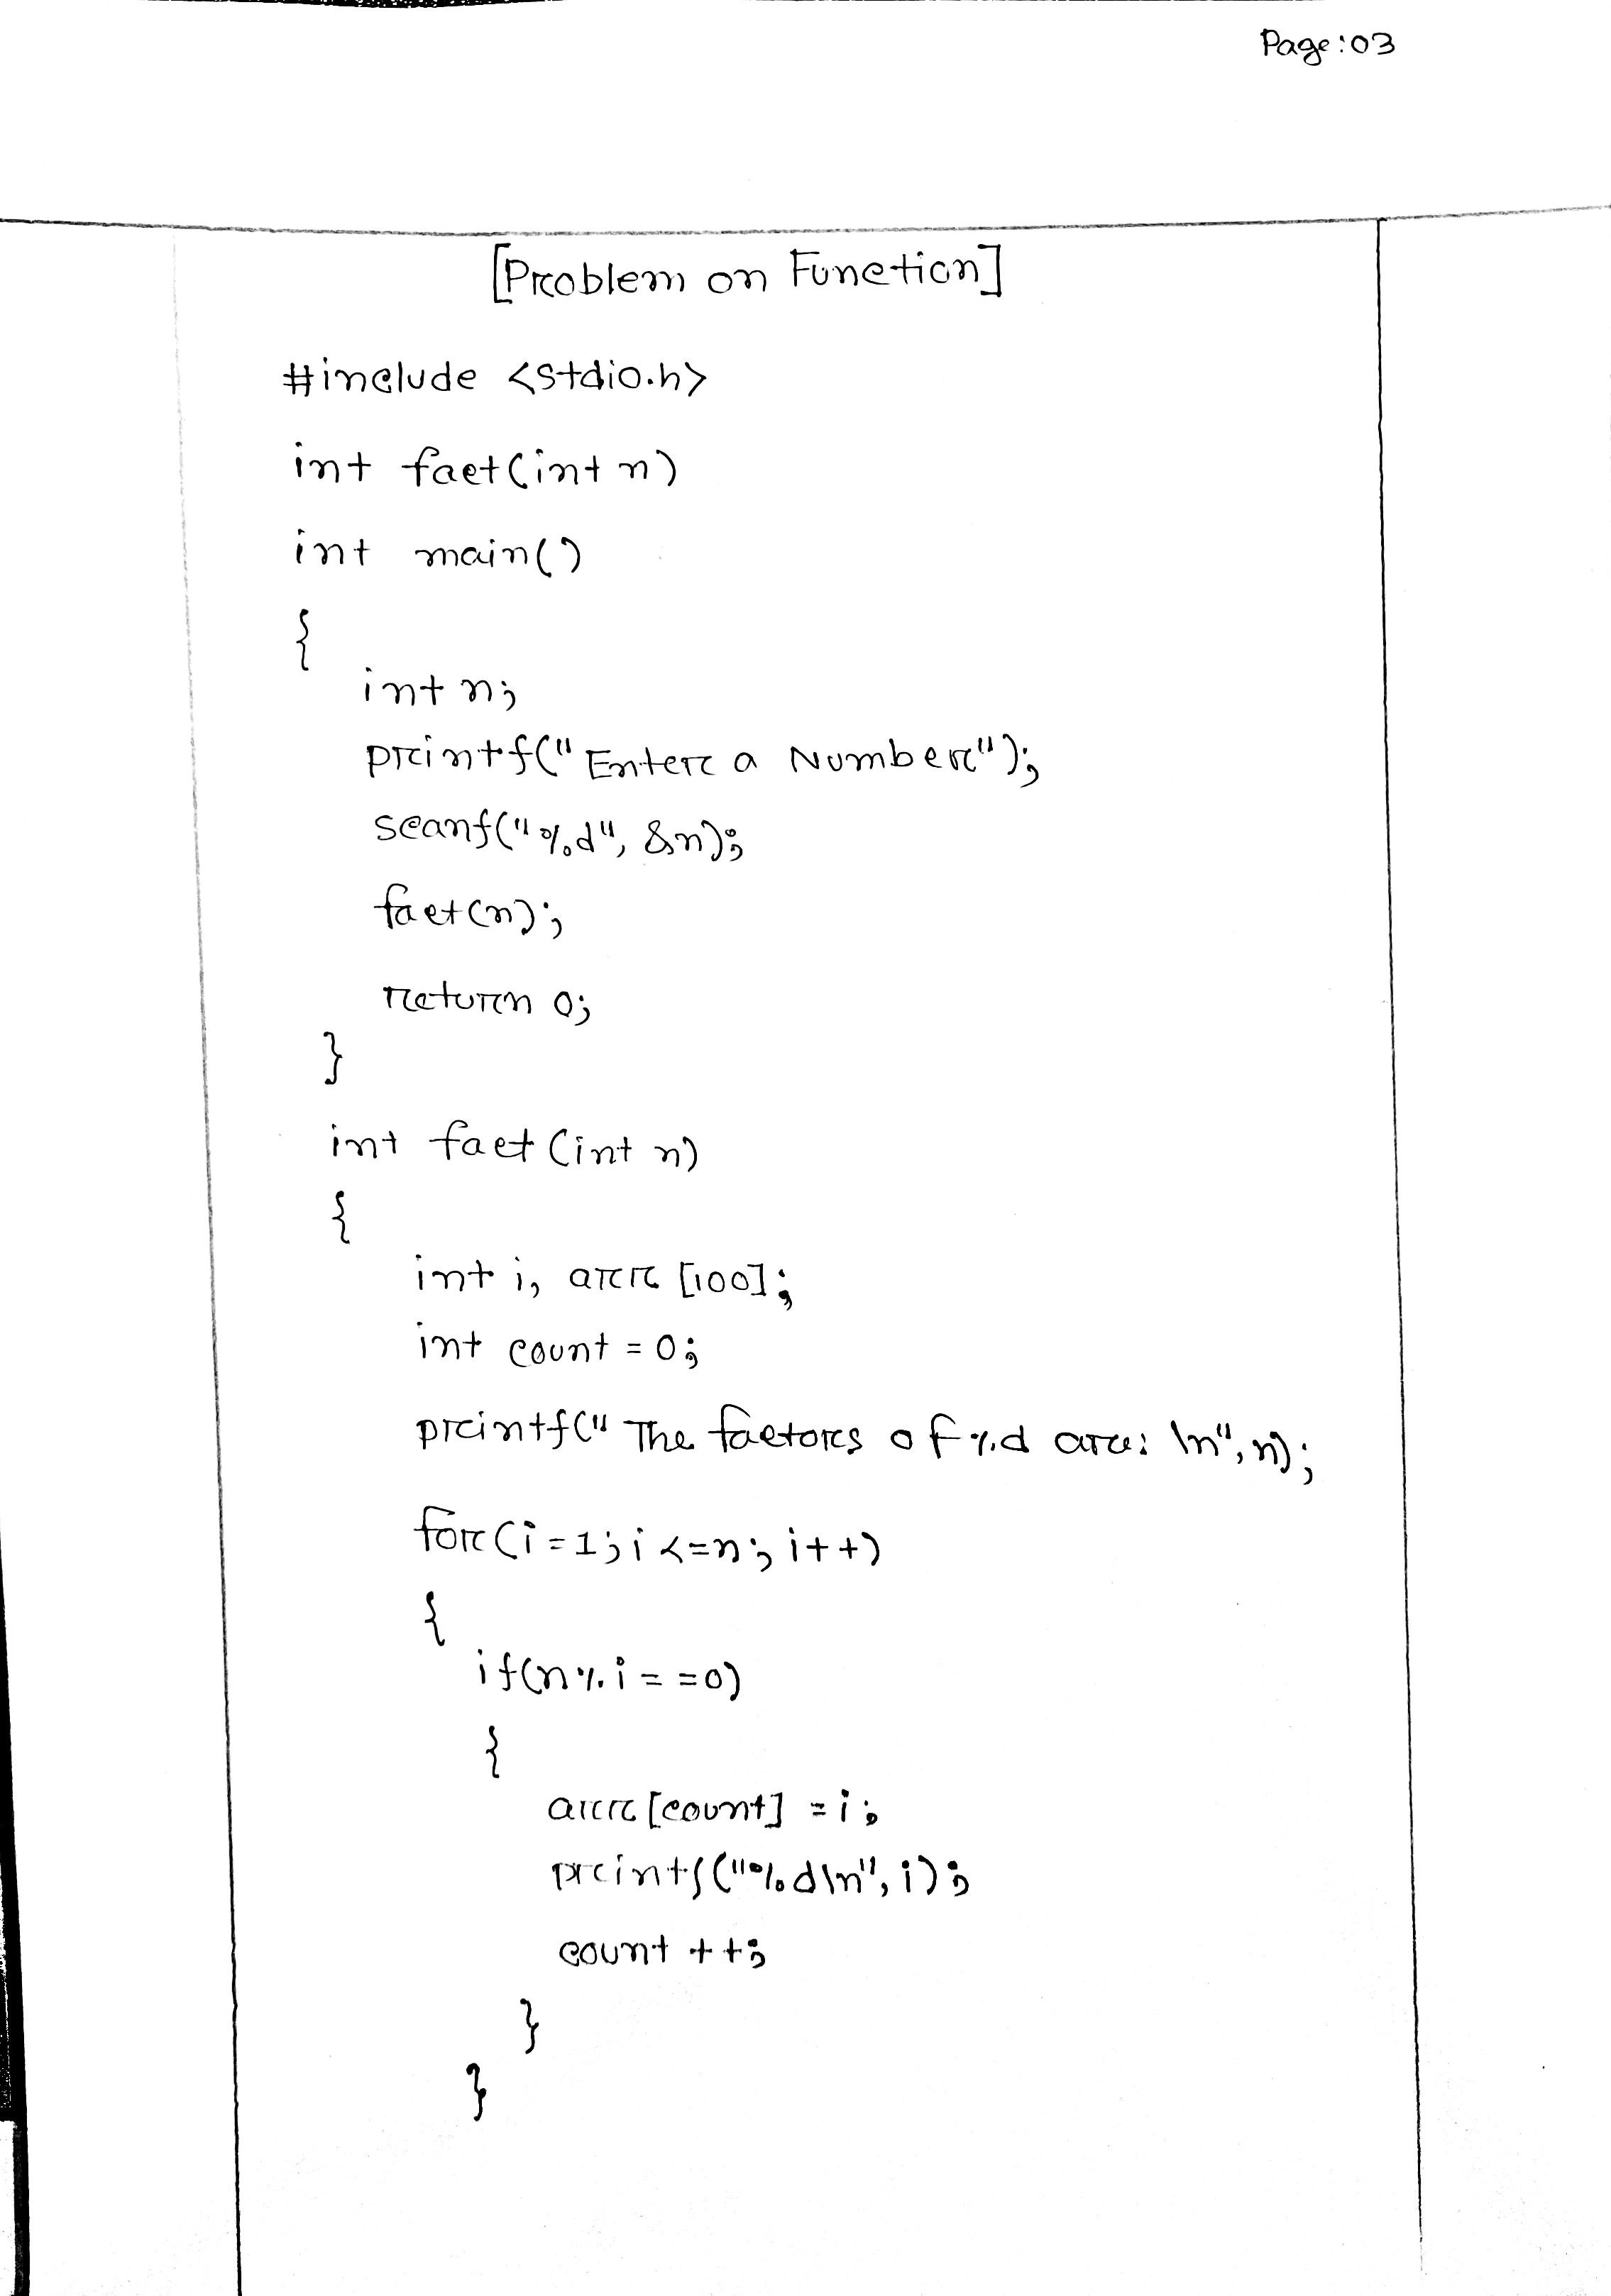 Page:03
[Problem on Function]
#include <stdio.h>
int fact(int n)
int main()
{
int n;
printf("Enter a Number");
scanf("%d", &n);
fact(n);
return 0;
}
int fact (int n)
{
int i, arr [100];
int count = 0;
printf(" The factors of %d are: \n", n);
for(i=1; i<=n; i++)
{
if(n%i==0)
{
arr[count] = i;
printf("%d\n", i);
count ++;
}
}